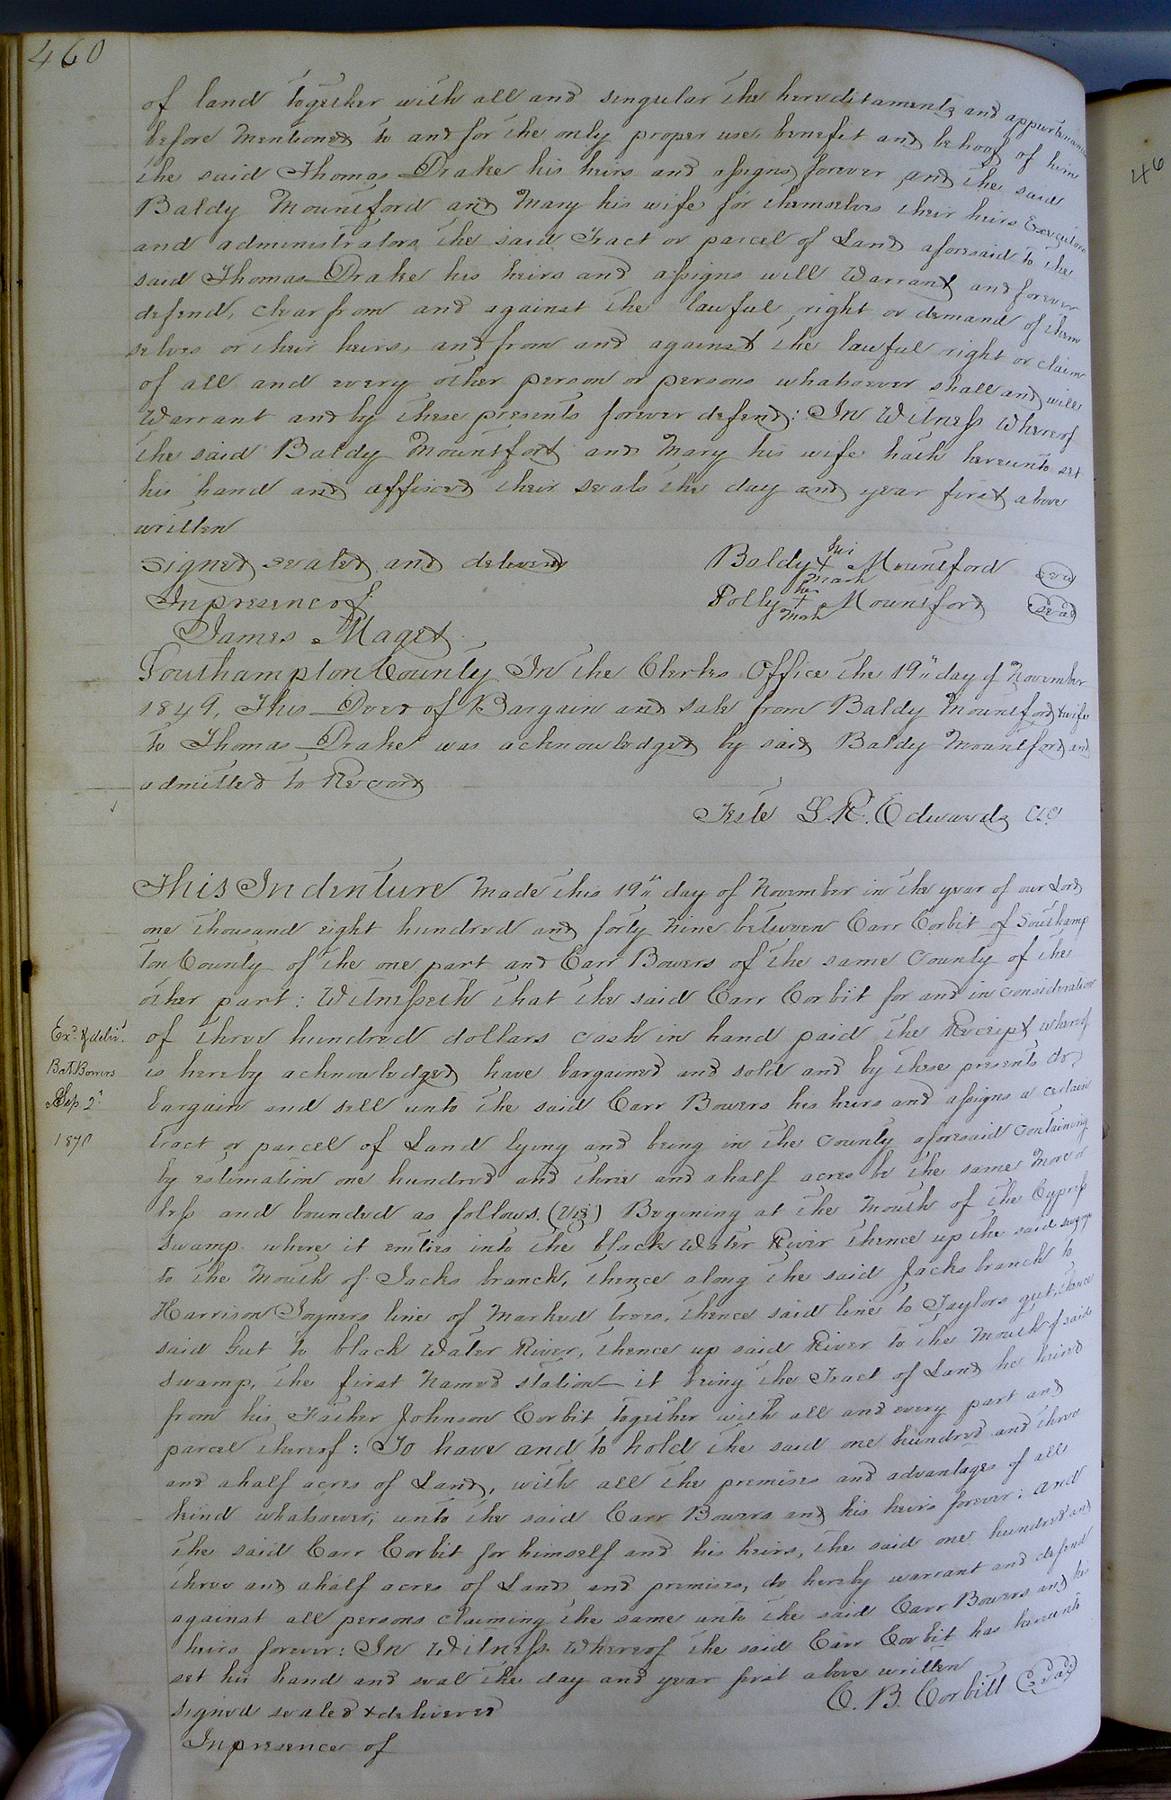 460
of land together with all and singular the hereditaments and appurtenances
before mentioned to and for the only proper use, benefit and behoof of him
the said Thomas Drake his heirs and assigns forever and the said
Baldy Mountford and Mary his wife for themselves their heirs Executors
and administrators the said Tract or parcel of Land aforesaid to the
said Thomas Drake his heirs and assigns will Warrant and forever
defend, clear from and against the lawful right or demand of them
selves or their heirs, and from and against the lawful right or claim
of all and every other person or persons whatsoever shall and will
Warrant and by these presents forever defend: In Witness Whereof
the said Baldy Mountford and Mary his wife hath hereunto set
his hand and affixed their seals the day and year first above
written
Signed sealed and delivered
In presence of
James Maget
his
Baldy + Mountford seal
mark
her
Polly + Mountford seal
mark
Southampton County In the Clerks Office the 19" day of November
1849, This Deed of Bargain and sale from Baldy Mountford & wife
to Thomas Drake was acknowledged by said Baldy Mountford and
admitted to Record
Teste L. R. Edwards Clk
This Indenture Made this 19th day of November in the year of our Lord
one thousand eight hundred and forty Nine between Carr Corbit of Southamp
ton County of the one part and Carr Bowers of the same County of the
other part: Witnesseth that the said Carr Corbit for and in consideration
of three hundred dollars cash in hand paid the Receipt whereof
is hereby acknowledged have bargained and sold and by these presents do
bargain and sell unto the said Carr Bowers his heirs and assigns a certain
tract or parcel of Land lying and being in the County aforesaid containing
by estimation one hundred and three and a half acres be the same More or
less and bounded as follows. (Viz) Begining at the Mouth of the Cypress
Swamp where it emties into the black Water River thence up the said swamp
to the Mouth of Jacks branch, thence along the said Jacks branch to
Harrison Joyners line of Marked trees, thence said line to Taylors gut, thence
said Gut to black Water River, thence up said River to the Mouth of said
Swamp, the first Named station it being the Tract of Land he heired
from his Father Johnson Corbit together with all and every part and
parcel thereof: To have and to hold the said one hundred and three
and a half acres of Land, with all the premises and advantages of all
kind whatsoever, unto the said Carr Bowers and his heirs forever: And
the said Carr Corbit for himself and his heirs, the said one hundred and
three and a half acres of Land and premises, do hereby warrant and defend
against all persons claiming the same unto the said Carr Bowers and his
heirs forever: In Witness Whereof the said Carr Corbit has hereunto
set his hand and seal the day and year first above written
Signed sealed & delivered
In presence of
C. B. Corbitt seal
Exd. & delivd.
Bowers
Sep. 2d
1870
46